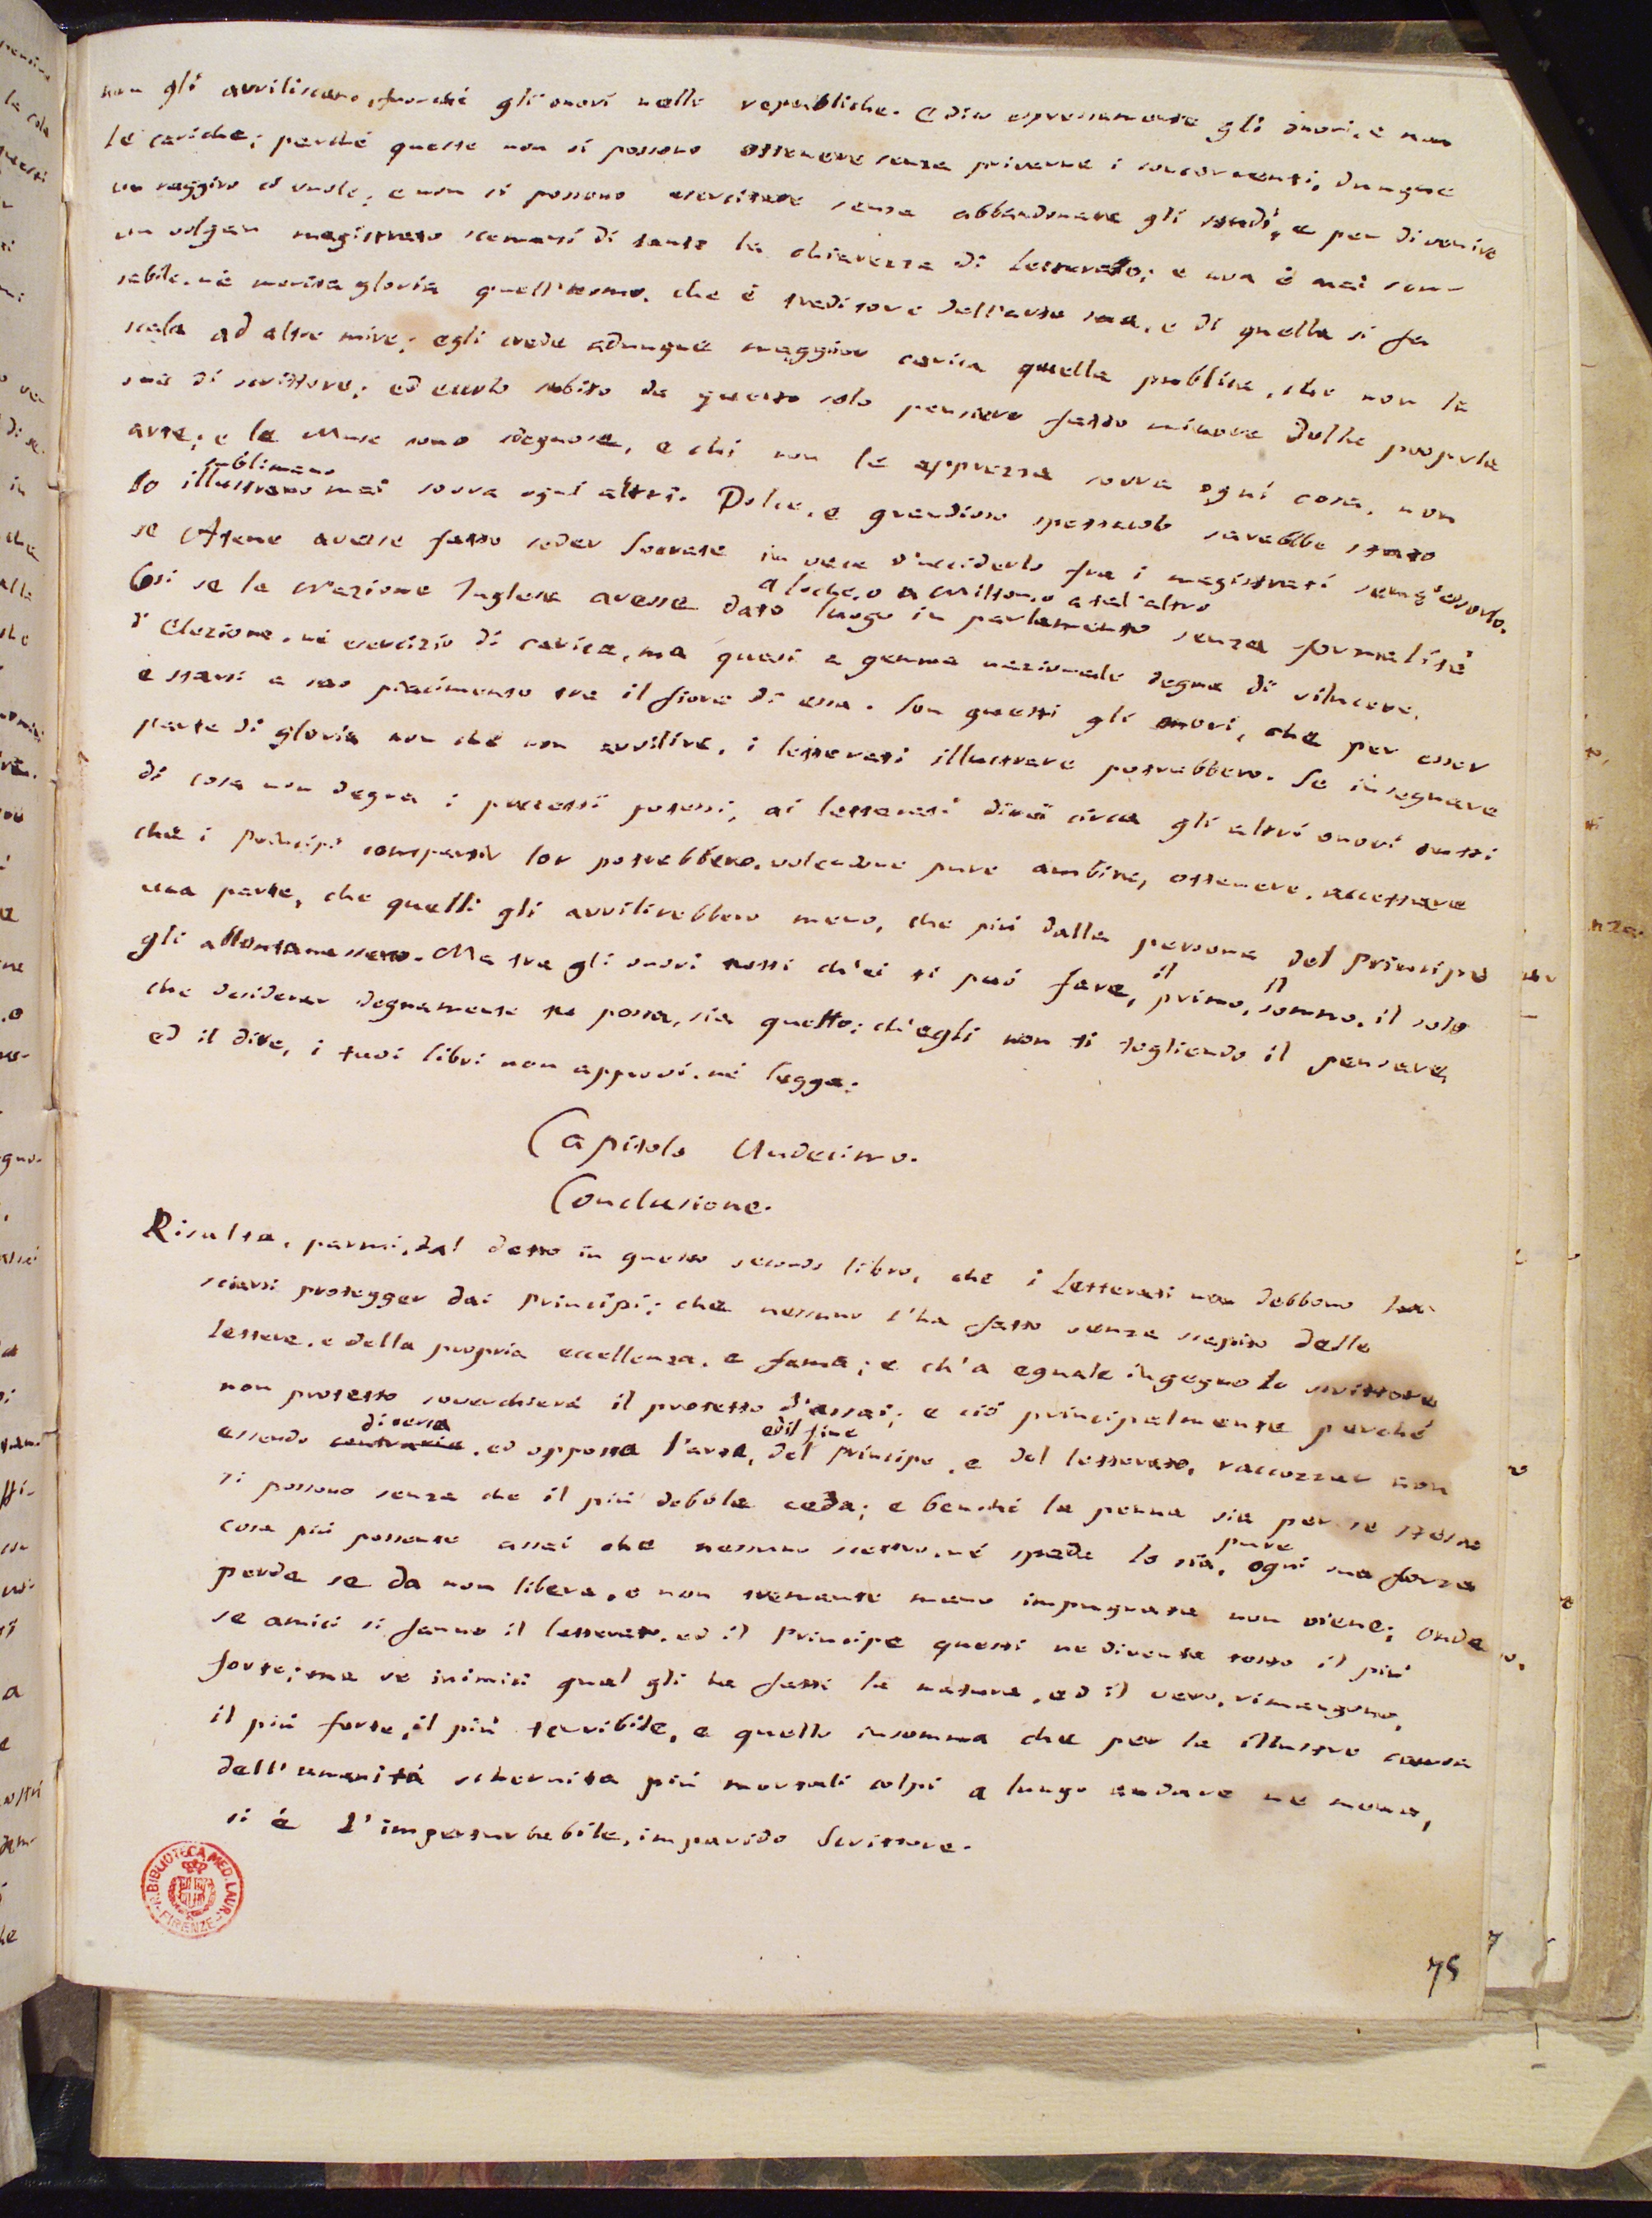 non gli avviliscano, fuorché gli onori nelle repubbliche. E dico espressamente gli onori, e non
le cariche; perché queste non si possono ottenere senza privarne i concorrenti, dunque
un raggiro ci vuole; e non si possono esercitare senza abbandonare gli studi, e per divenire
un volgar magistrato scemasi di tanto la chiarezza di letterato; e non è mai scu-
sabile. né merita gloria quell'uomo, che è traditore dell'arte sua, e di quella si fa
scala ad altre mire; egli crede adunque maggior carica quella pubblica, che non la
sua di scrittore; ed eccolo subito da questo solo pensiero fatto minore della propria
arte; e le Muse sono sdegnose, e chi non le apprezza sovra ogni cosa, non
sublimano
lo illustrano mai sovra ogni altri. Dolce, e grandioso spettacolo sarebbe stato
se Atene avesse fatto seder Socrate in vece d'ucciderlo fra i magistrati senz'esserlo.
a Loche, o a Milton, o a tal'altro
Così se la Nazione Inglese avesse dato luogo in parlamento senza formalità
d'Elezione, né esercizio di carica, ma quasi a gemma nazionale degna di rilucere,
e starsi a suo piacimento tra il fiore di essa. Son questi gli onori, che per esser
parte di gloria non che non avvilire, i letterati illustrare potrebbero. Se insegnare
di cosa non degna i precetti potessi, ai letterati direi circa gli altri onori tutti
che i Principi compartir lor potrebbero, volendone pure ambire, ottenere, accettare
una parte, che quelli gli avvilirebbero meno, che più dalla persona del Principe
gli allontanassero. Ma tra gli onori tutti ch'ei ti può fare, il primo, il sommo, il solo
che desiderar degnamente tu possa, sia questo; ch'egli non ti togliendo il pensare,
ed il dire, i tuoi libri non approvi, né legga;
Capitolo Undecimo.
Conclusione.
Risulta, parmi, dal detto in questo secondo libro, che i Letterati non debbono la-
sciarsi protegger dai Principi; che nessuno l'ha fatto senza scapito delle
lettere, e della propria eccellenza, e fama; e ch'a eguale ingegno lo scrittore
non protetto soverchierà il protetto d'assai; e ciò principalmente perché
diversa
ed il fine
essendo contraria, ed opposta l'arte, del Principe, e del letterato, raccozzar non
si possono senza che il più debole ceda; e benché la penna sia per se stessa
cosa più possente assai che nessuno scettro, né spada lo sia, pure ogni sua forza
perde se da non libera, e non tremante mano impugnata non viene; onde
se amici si fanno il letterato, ed il Principe questi ne diventa tosto il più
forte; ma se inimici qual gli ha fatti la natura, ed il vero, rimangono,
il più forte, il più terribile, e quello insomma che per la illustre causa
dell'umanità schernita più mortali colpi a lungo andare ne mena,
si è l'imperturbabile, impavido Scrittore.
R. BIBLIOTECA MED. LAUR. FIRENZE
75